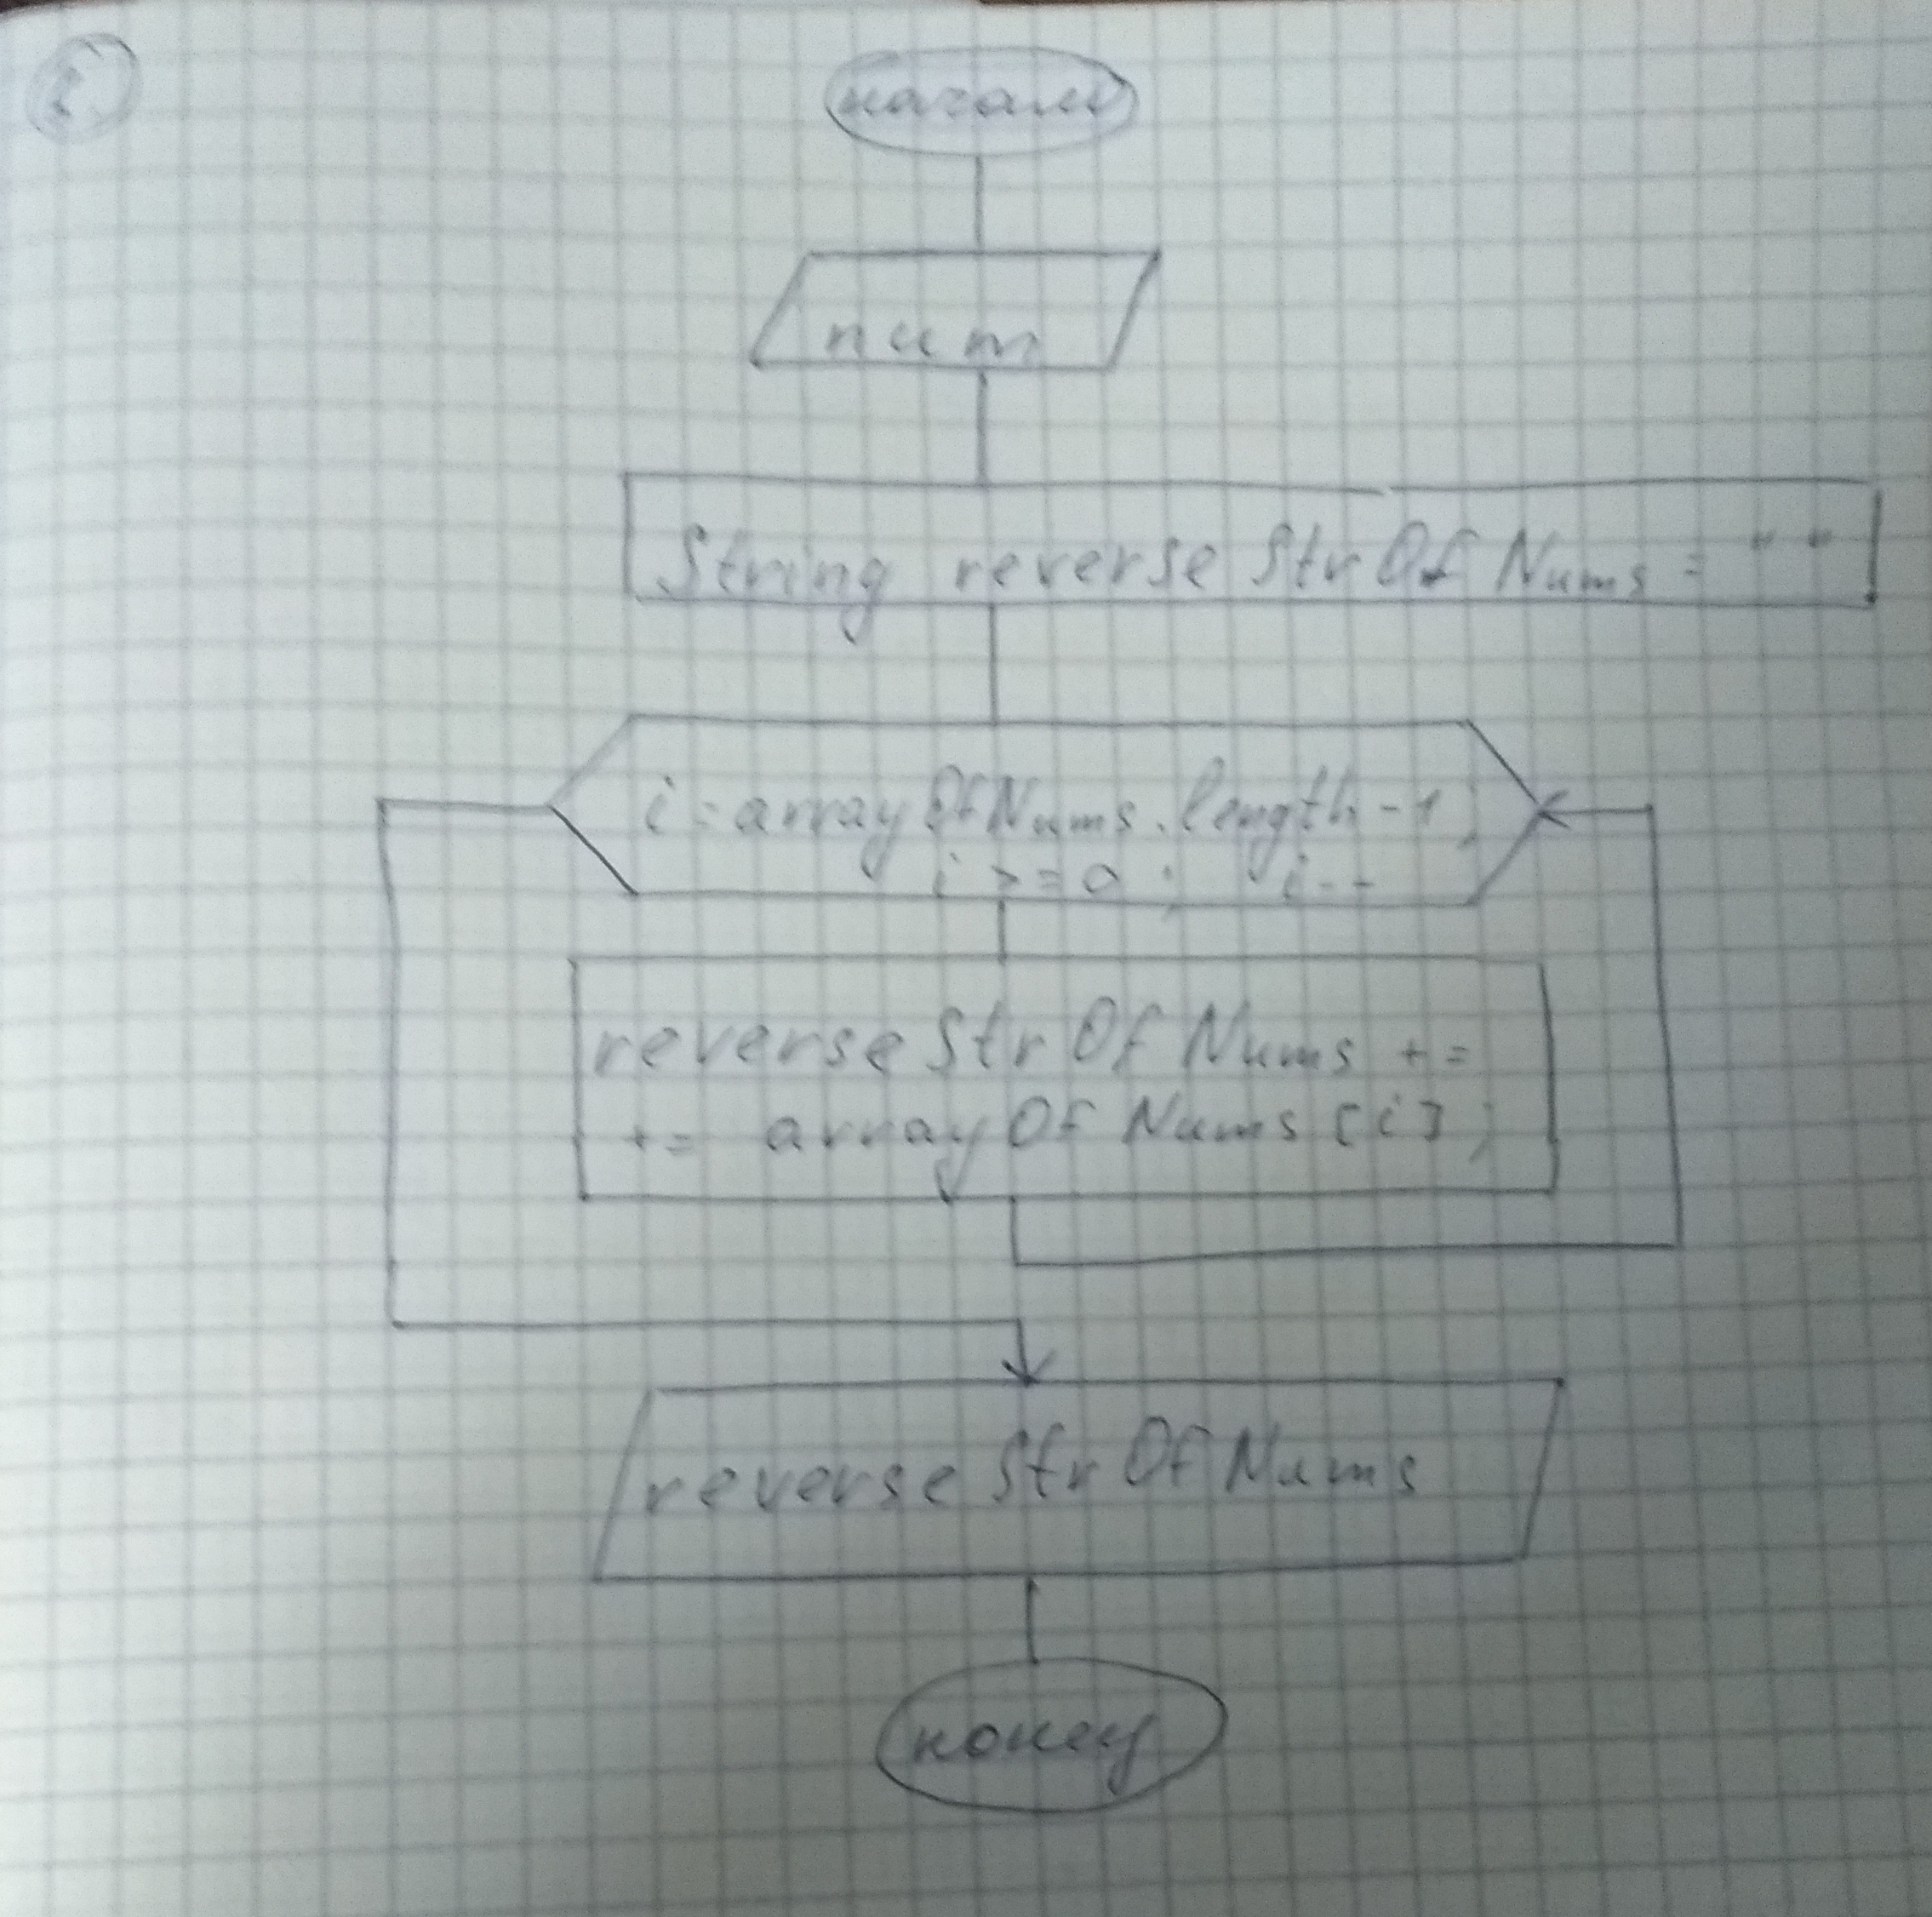 начало
num
String reverseStrOfNums = " "
i = arrayOfNums.length - 1;
i >= 0; i--
reverseStrOfNums +=
+= arrayOfNums[i];
reverseStrOfNums
конец